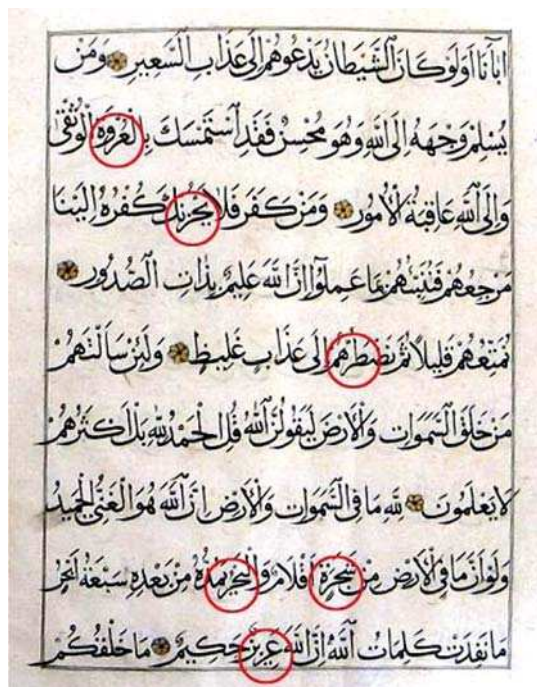 اٰبَآءَنَا اَوَلَوْ كَانَ الشَّيْطَانُ يَدْعُوهُمْ اِلٰى عَذَابِ السَّعِيرِ وَمَنْ
يُسْلِمْ وَجْهَهُ اِلَى اللّٰهِ وَهُوَ مُحْسِنٌ فَقَدِ اسْتَمْسَكَ بِالْعُرْوَةِ الْوُثْقٰى
وَاِلَى اللّٰهِ عَاقِبَةُ الْاُمُورِ وَمَنْ كَفَرَ فَلَا يَحْزُنْكَ كُفْرُهُ اِلَيْنَا
مَرْجِعُهُمْ فَنُنَبِّئُهُمْ بِمَا عَمِلُوا اِنَّ اللّٰهَ عَلِيمٌ بِذَاتِ الصُّدُورِ
نُمَتِّعُهُمْ قَلِيلًا ثُمَّ نَضْطَرُّهُمْ اِلٰى عَذَابٍ غَلِيظٍ وَلَئِنْ سَاَلْتَهُمْ
مَنْ خَلَقَ السَّمٰوَاتِ وَالْاَرْضَ لَيَقُولُنَّ اللّٰهُ قُلِ الْحَمْدُ لِلّٰهِ بَلْ اَكْثَرُهُمْ
لَا يَعْلَمُونَ لِلّٰهِ مَا فِي السَّمٰوَاتِ وَالْاَرْضِ اِنَّ اللّٰهَ هُوَ الْغَنِيُّ الْحَمِيدُ
وَلَوْ اَنَّ مَا فِي الْاَرْضِ مِنْ شَجَرَةٍ اَقْلَامٌ وَالْبَحْرُ يَمُدُّهُ مِنْ بَعْدِهِ سَبْعَةُ اَبْحُرٍ
مَا نَفِدَتْ كَلِمَاتُ اللّٰهِ اِنَّ اللّٰهَ عَزِيزٌ حَكِيمٌ مَا خَلْقُكُمْ